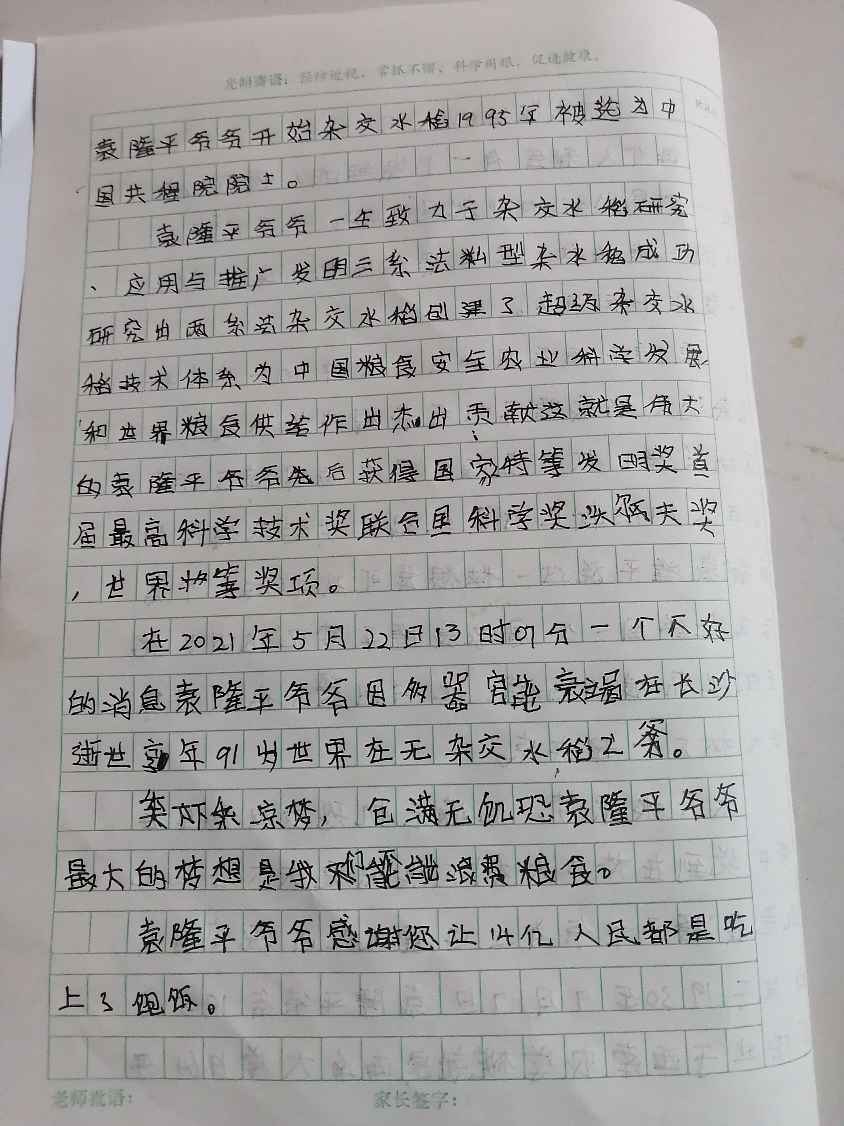 光明寄语：预防近视，常抓不懈，科学用眼，促进健康。
袁隆平爷爷开始杂交水稻1995年被选为中
国共程院院士。
袁隆平爷爷一生致力于杂交水稻研究
、应用与推广发明三系法籼型杂水稻成功
研究出两系法杂交水稻创建了超级杂交水
稻技术体系为中国粮食安全农业科学发展
和世界粮食供给作出杰出贡献这就是伟大
的袁隆平爷爷先后获得国家特等发明奖首
届最高科学技术奖联合国科学奖沃尔夫奖
，世界等奖项。
在2021年5月22日13时07分一个不好
的消息袁隆平爷爷因多器官能衰竭在长沙
逝世享年91岁世界在无杂交水稻之爷。
凉梦，仓满无饥恐袁隆平爷爷
最大的梦想是我们不能浪费粮食。
袁隆平爷爷感谢您让14亿人民都是吃
上了饱饭。
老师批语：
家长签字：